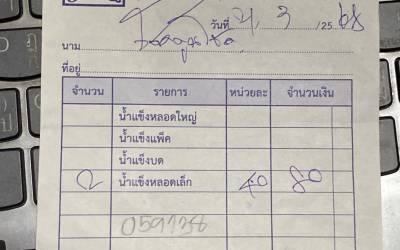 วันที่ 4, 3 /25 68
นาม
ที่อยู่
จำนวน รายการ หน่วยละ จำนวนเงิน
น้ำแข็งหลอดใหญ่
น้ำแข็งแพ็ค
น้ำแข็งบด
2 น้ำแข็งหลอดเล็ก 40 80
059738